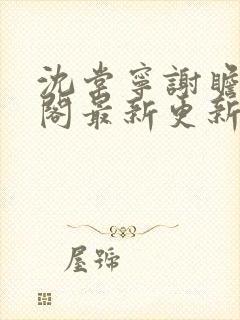 沈棠寧謝瞻
閣最新更新
屋號